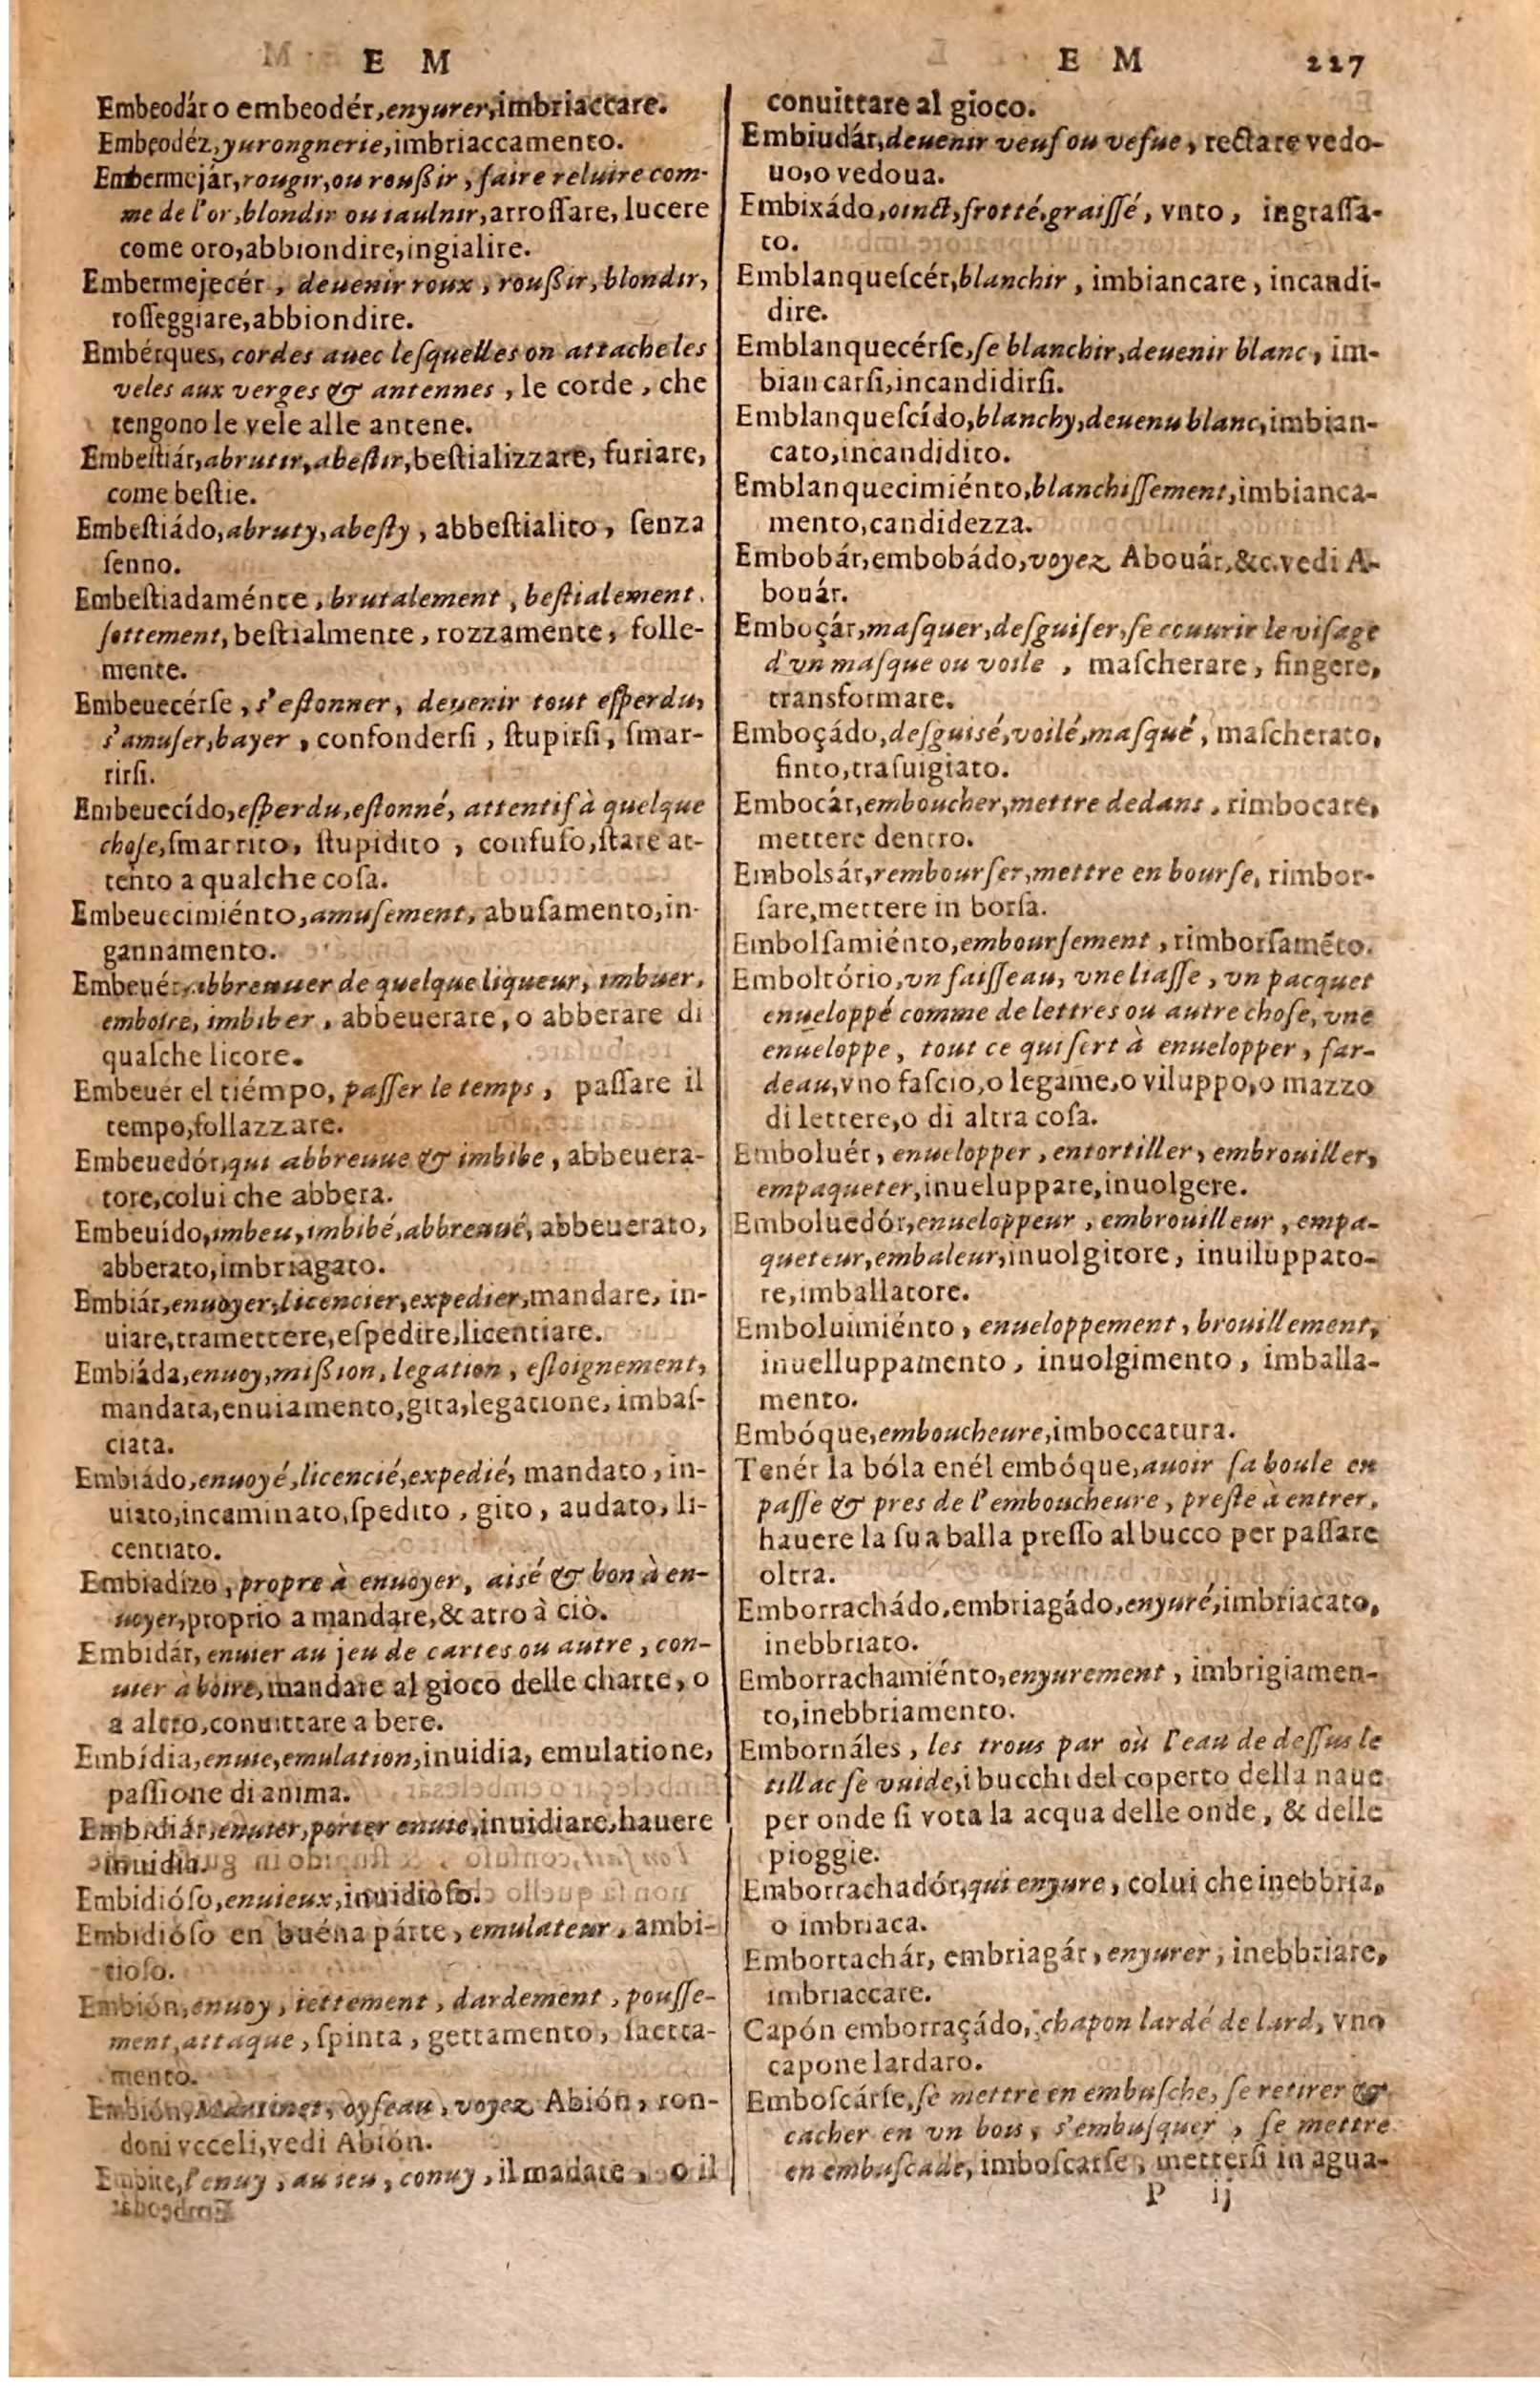 E M
Embeodár o embeodér, enyurer, imbriaccare.
Embeodéz, yurongnerie, imbriaccamento.
Embermejár, rougir, ou roußir, faire reluire com-
me de l'or, blondir ou iaulnir, arroſſare, lucere
come oro, abbiondire, ingialire.
Embermejecér, deuenir roux, roußir, blondir,
roſſeggiare, abbiondire.
Embérques, cordes auec leſquelles on attache les
veles aux verges & antennes, le corde, che
tengono le vele alle antene.
Embeſtiár, abrutir, abeſtir, beſtializzare, furiare,
come beſtie.
Embeſtiádo, abruty, abeſty, abbeſtialito, ſenza
ſenno.
Embeſtiadaménte, brutalement, beſtialement,
ſottement, beſtialmente, rozzamente, folle-
mente.
Embeuecérſe, s'eſtonner, deuenir tout eſperdu,
s'amuſer, bayer, confonderſi, ſtupirſi, ſmar-
rirſi.
Embeuecído, eſperdu, eſtonné, attentif à quelque
choſe, ſmarrito, ſtupidito, confuſo, ſtare at-
tento a qualche coſa.
Embeuecimiénto, amuſement, abuſamento, in-
gannamento.
Embeuér, abbreuuer de quelque liqueur, imbuer,
emboire, imbiber, abbeuerare, o abberare di
qualche licore.
Embeuér el tiémpo, paſſer le temps, paſſare il
tempo, follazzare.
Embeuedór, qui abbreuue & imbibe, abbeuera-
tore, colui che abbera.
Embeuído, imbeu, imbibé, abbreuué, abbeuerato,
abberato, imbriagato.
Embiár, enuoyer, licencier, expedier, mandare, in-
uiare, tramettere, eſpedire, licentiare.
Embiáda, enuoy, mißion, legation, eſloignement,
mandata, enuiamento, gita, legatione, imbaſ-
ciata.
Embiádo, enuoyé, licencié, expedié, mandato, in-
uiato, incaminato, ſpedito, gito, audato, li-
centiato.
Embiadízo, propre à enuoyer, aisé & bon à en-
uoyer, proprio a mandare, & atro à ciò.
Embidár, enuier au jeu de cartes ou autre, con-
uier à boire, mandare al gioco delle charte, o
a altro, conuittare a bere.
Embídia, enuie, emulation, inuidia, emulatione,
paſſione di anima.
Embidiár, enuier, porter enuie, inuidiare, hauere
inuidia.
Embidióſo, enuieux, inuidioſo.
Embidióſo en buéna párte, emulateur, ambi-
tioſo.
Embión, enuoy, iettement, dardement, pouſſe-
ment, attaque, ſpinta, gettamento, ſaetta-
mento.
Embión, Martinet, oyſeau, voyez Abión, ron-
doni vcceli, vedi Abión.
Embite, l'enuy, au ieu, conuy, il mādare, o il
E M 227
conuittare al gioco.
Embiudár, deuenir veuf ou vefue, reſtare vedo-
uo, o vedoua.
Embixádo, oinct, frotté, graiſſé, vnto, ingraſſa-
to.
Emblanqueſcér, blanchir, imbiancare, incandi-
dire.
Emblanquecérſe, ſe blanchir, deuenir blanc, im-
biancarſi, incandidirſi.
Emblanqueſcído, blanchy, deuenu blanc, imbian-
cato, incandidito.
Emblanquecimiénto, blanchiſſement, imbianca-
mento, candidezza.
Embobár, embobádo, voyez Abouár, &c. vedi A-
bouár.
Emboçár, maſquer, deſguiſer, ſe couurir le viſage
d'vn maſque ou voile, maſcherare, fingere,
transformare.
Emboçádo, deſguisé, voilé, maſqué, maſcherato,
finto, traſuigiato.
Embocár, emboucher, mettre dedans, rimbocare,
mettere dentro.
Embolsár, rembourſer, mettre en bourſe, rimbor-
ſare, mettere in borſa.
Embolſamiénto, embourſement, rimborſamēto.
Emboltório, vn faiſſeau, vne liaſſe, vn pacquet
enueloppé comme de lettres ou autre choſe, vne
enueloppe, tout ce qui ſert à enuelopper, far-
deau, vno faſcio, o legame, o viluppo, o mazzo
di lettere, o di altra coſa.
Emboluér, enuelopper, entortiller, embrouiller,
empaqueter, inueluppare, inuolgere.
Emboluedór, enueloppeur, embrouilleur, empa-
queteur, embaleur, inuolgitore, inuiluppato-
re, imballatore.
Emboluimiénto, enueloppement, brouillement,
inuelluppamento, inuolgimento, imballa-
mento.
Embóque, emboucheure, imboccatura.
Tenér la bóla enél embóque, auoir ſa boule en
paſſe & pres de l'emboucheure, preſte à entrer,
hauere la ſua balla preſſo al bucco per paſſare
oltra.
Emborrachádo, embriagádo, enyuré, imbriacato,
inebbriato.
Emborrachamiénto, enyurement, imbrigiamen-
to, inebbriamento.
Embornáles, les trous par où l'eau de deſſus le
tillac ſe vuide, i bucchi del coperto della naue
per onde ſi vota la acqua delle onde, & delle
pioggie.
Emborrachadór, qui enyure, colui che inebbria,
o imbriaca.
Emborrachár, embriagár, enyurer, inebbriare,
imbriaccare.
Capón emborraçádo, chapon lardé de lard, vno
capone lardaro.
Emboſcárſe, ſe mettre en embuſche, ſe retirer &
cacher en vn bois, s'embuſquer, ſe mettre
en embuſcade, imboſcarſe, metterſi in agua-
P ij